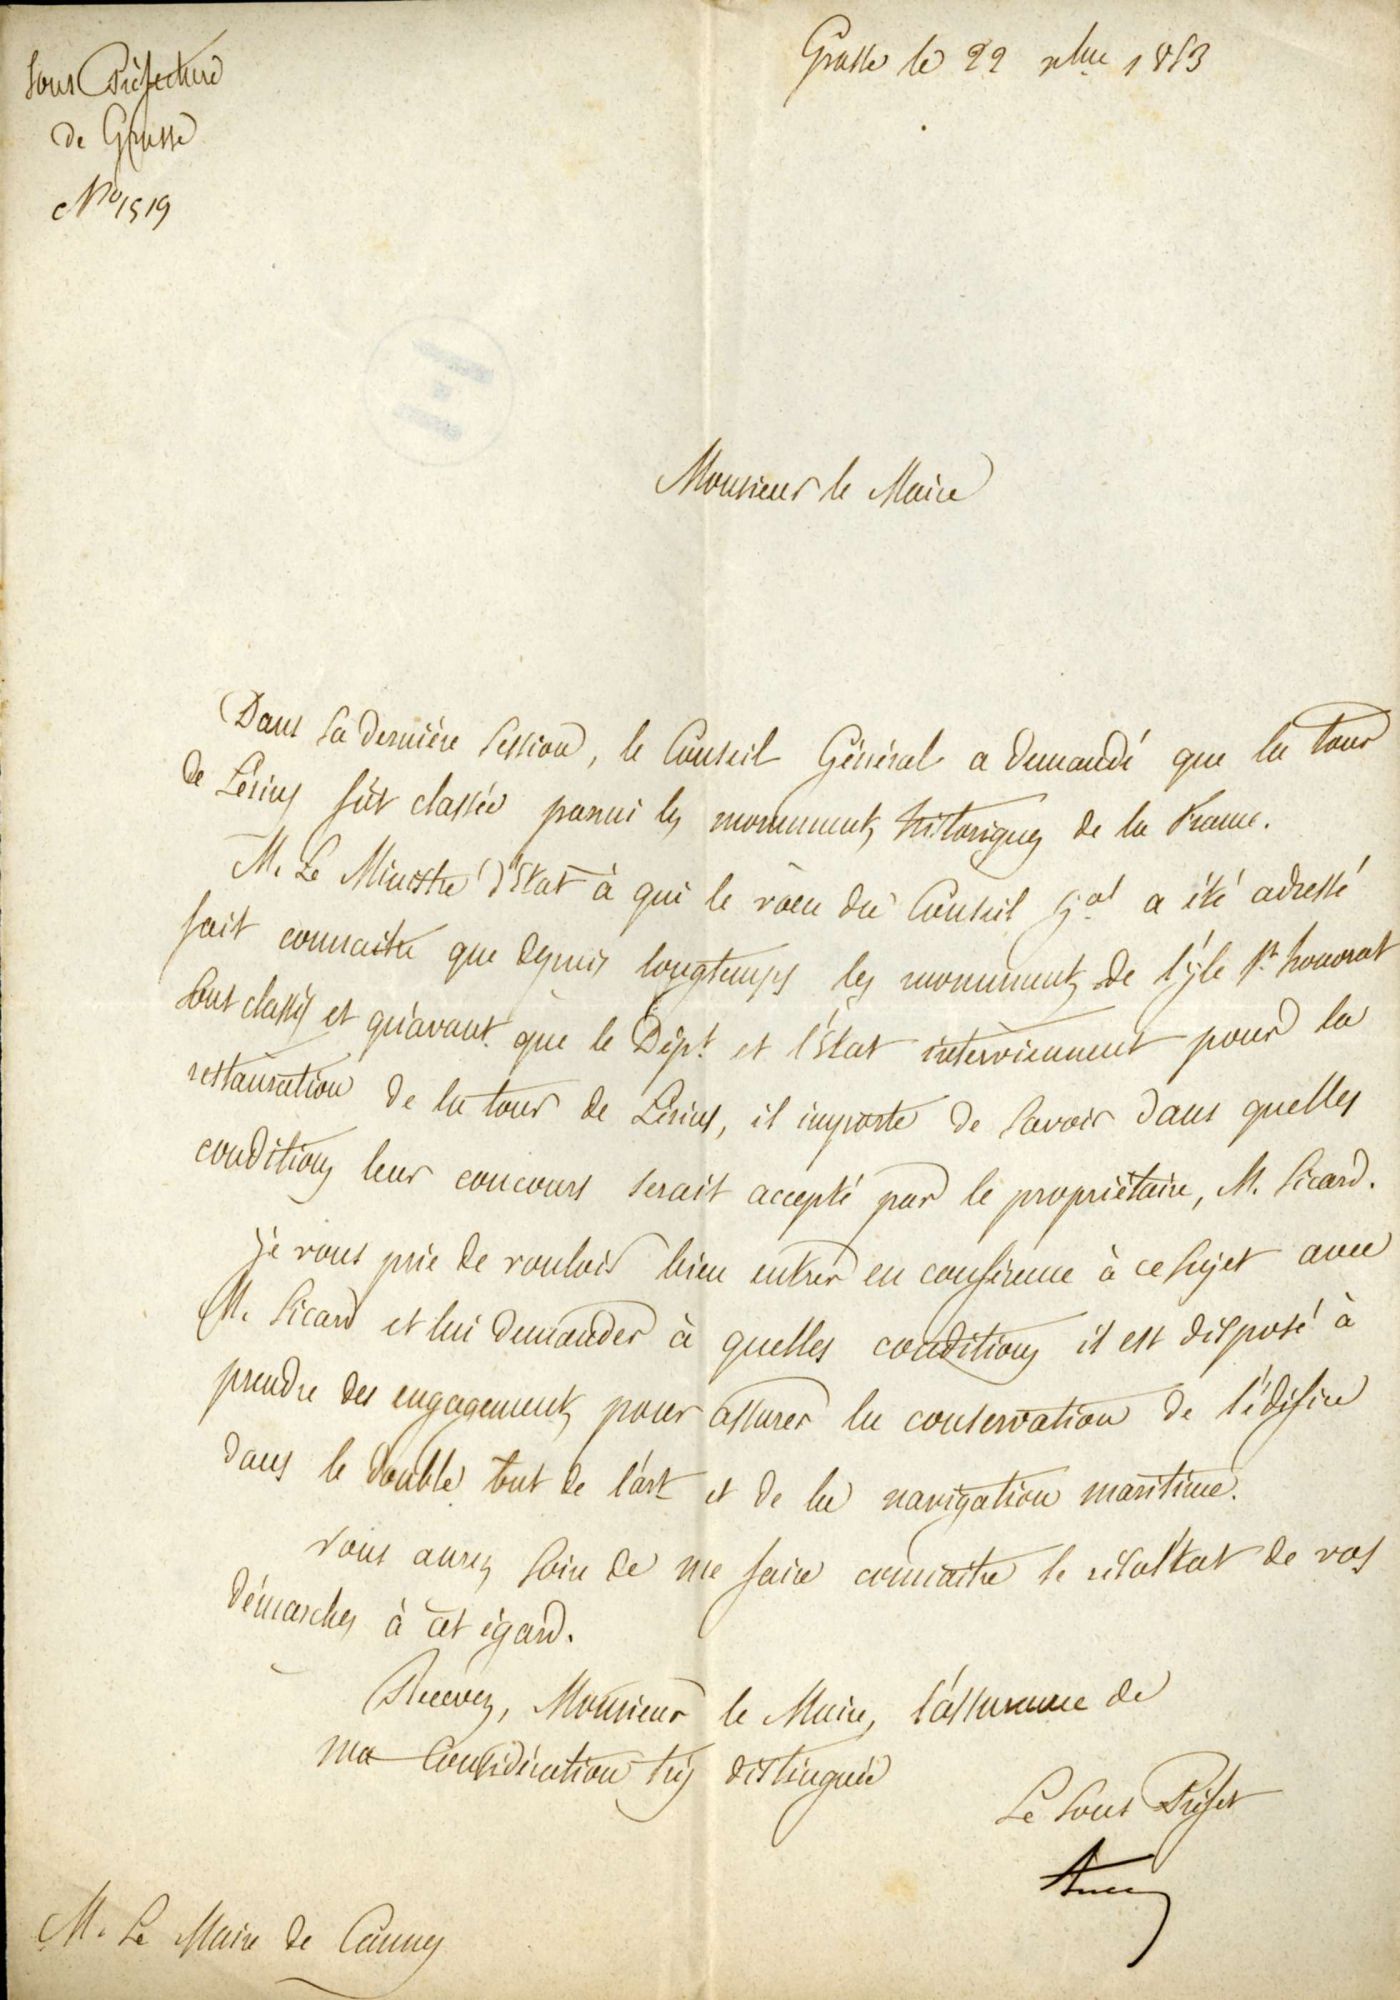 Sous Préfecture
de Grasse
No 1519
Grasse le 22 xbre 1853
Monsieur le Maire
Dans sa dernière session, le Conseil Général a demandé que la tour
de Lérins fût classée parmi les monuments historiques de la France.
M. Le Ministre d'Etat à qui le vœu du Conseil Gal a été adressé
fait connaitre que depuis longtemps les monuments de l'île St. honorat
sont classés et qu'avant que le Dépt. et l'Etat interviennent pour la
restauration de la tour de Lérins, il importe de savoir dans quelles
conditions leur concours serait accepté par le propriétaire, M. Sicard.
je vous prie de vouloir bien entrer en conférence à ce sujet avec
M. Sicard et lui demander à quelles conditions il est disposé à
prendre des engagements pour assurer la conservation de l'édifice
dans le double but de l'art et de la navigation maritime.
Vous aurez soin de me faire connaitre le résultat de vos
démarches à cet égard.
Recevez, Monsieur le Maire, l'assurance de
ma Considération très distinguée
Le Sous Préfet
M. Le Maire de Cannes